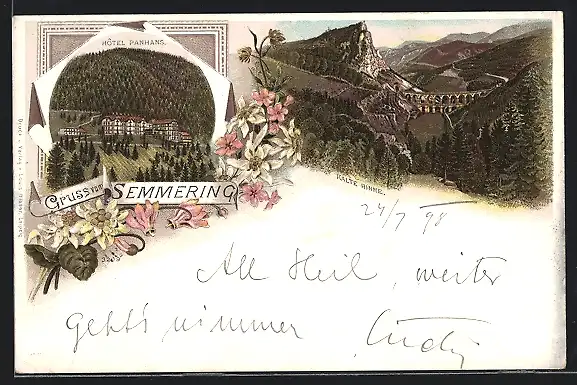 HÔTEL PANHANS.
GRUSS VOM SEMMERING
KALTE RINNE.
24/7 98
All Heil, weiter
geht's nimmer